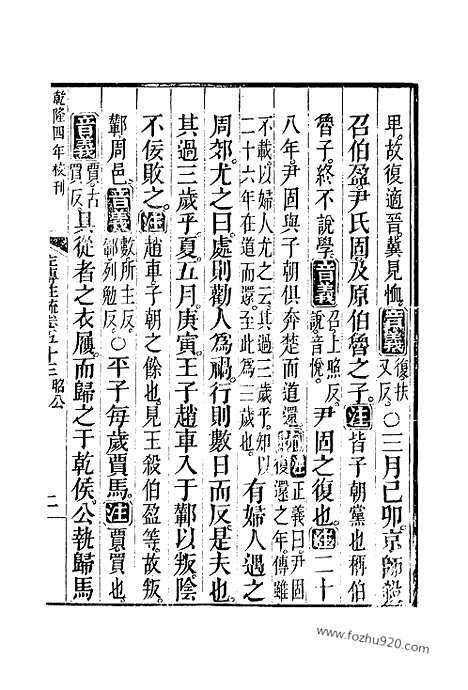 卑故復適晉冀見恤音義復扶又反○三月己卯京師殺
召伯盈尹氏固及原伯魯之子注皆子朝黨也稱伯
魯子終不說學音義召上照反說音悅尹固之復也注二十
八年尹固與子朝俱奔楚而道還疏注正義曰尹固復還之年傳雖
不載以婦人尤之云其過三歲乎知以二十六年在道而還至此為三歲也有婦人遇之
周郊尤之曰處則勸人為禍行則數日而反是夫也
其過三歲乎夏五月庚寅王子趙車入于鄻以叛陰
不佞敗之注趙車子朝之餘也見王殺伯盈等故叛
鄻周邑音義數所主反鄻列勉反○平子每歲賈馬注賈買也
音義賈古買反具從者之衣屨而歸之于乾侯公執歸馬
乾隆四年校刊
左傳注疏卷五十三昭公
二
www.fozhu920.com